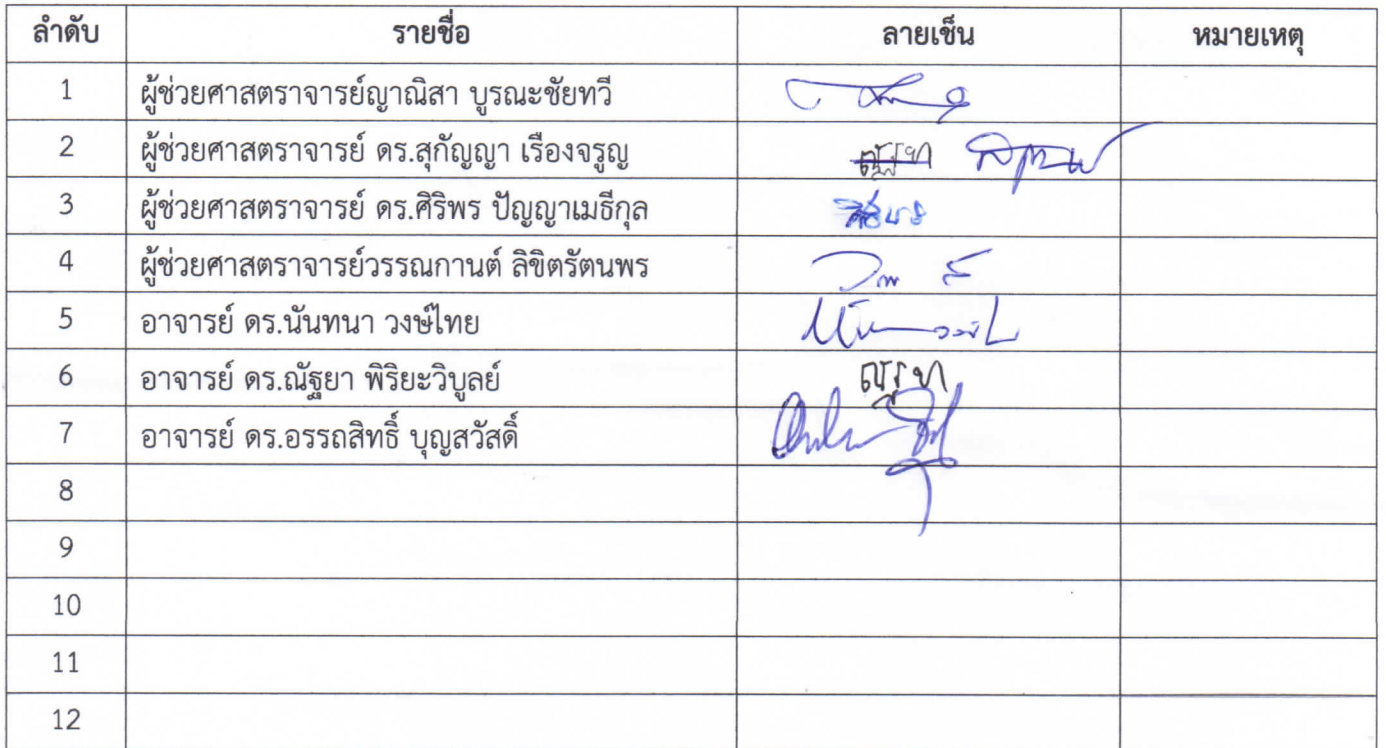 ลำดับ รายชื่อ ลายเซ็น หมายเหตุ
1 ผู้ช่วยศาสตราจารย์ญาณิสา บูรณะชัยทวี
2 ผู้ช่วยศาสตราจารย์ ดร.สุกัญญา เรืองจรูญ
3 ผู้ช่วยศาสตราจารย์ ดร.ศิริพร ปัญญาเมธีกุล ศิริพร
4 ผู้ช่วยศาสตราจารย์วรรณกานต์ ลิขิตรัตนพร
5 อาจารย์ ดร.นันทนา วงษ์ไทย
6 อาจารย์ ดร.ณัฐยา พิริยะวิบูลย์
7 อาจารย์ ดร.อรรถสิทธิ์ บุญสวัสดิ์
8
9
10
11
12